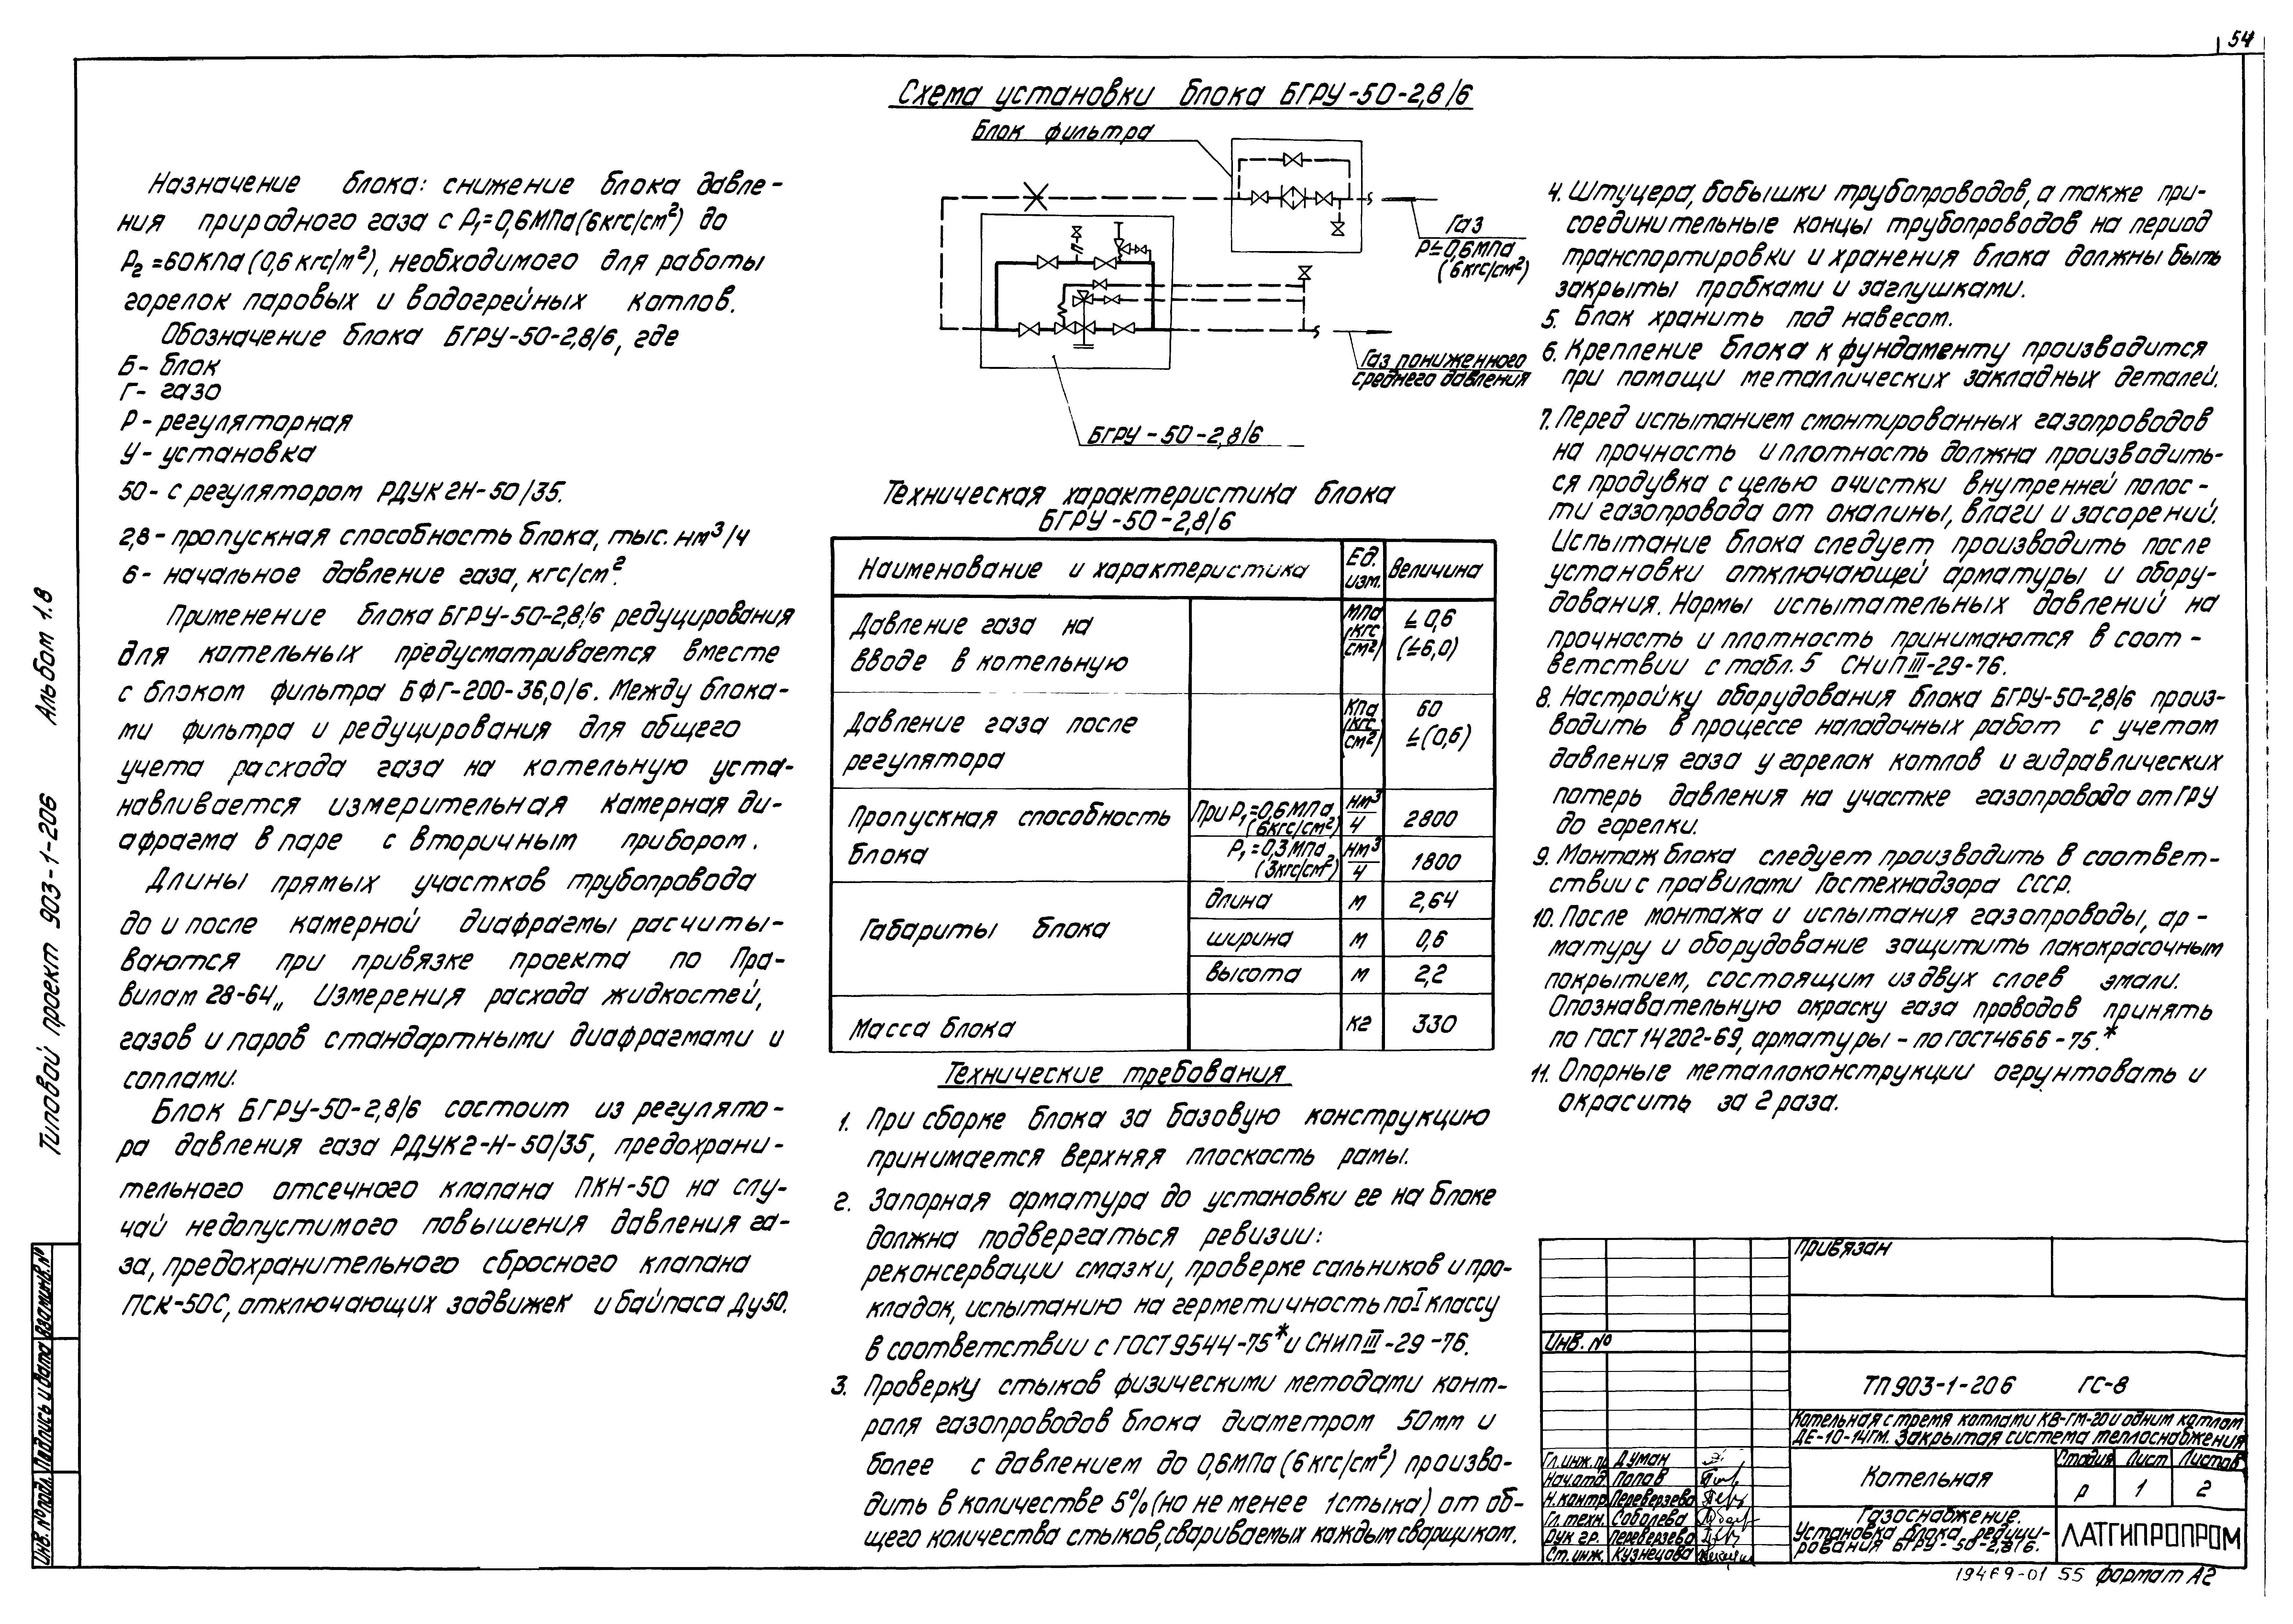 54
Схема установки блока БГРУ-50-2,8/6
Назначение блока: снижение блока давле-
ния природного газа с P₁=0,6МПа(6кгс/см²) до
P₂=60кПа(0,6кгс/м²), необходимого для работы
горелок паровых и водогрейных котлов.
Обозначение блока БГРУ-50-2,8/6, где
Б- блок
Г- газо
Р- регуляторная
У- установка
50- с регулятором РДУК2Н-50/35.
2,8- пропускная способность блока, тыс. нм³/ч
6- начальное давление газа, кгс/см².
Применение блока БГРУ-50-2,8/6 редуцирования
для котельных предусматривается вместе
с блоком фильтра БФГ-200-36,0/6. Между блока-
ми фильтра и редуцирования для общего
учета расхода газа на котельную уста-
навливается измерительная камерная ди-
афрагма в паре с вторичным прибором.
Длины прямых участков трубопровода
до и после камерной диафрагмы рассчиты-
ваются при привязке проекта по Пра-
вилам 28-64„ Измерения расхода жидкостей,
газов и паров стандартными диафрагмами и
соплами.
Блок БГРУ-50-2,8/6 состоит из регулято-
ра давления газа РДУК2-Н-50/35, предохрани-
тельного отсечного клапана ПКН-50 на слу-
чай недопустимого повышения давления га-
за, предохранительного сбросного клапана
ПСК-50С, отключающих задвижек и байпаса Ду50.
Блок фильтра
Газ
P≤0,6МПа
(6кгс/см²)
Газ пониженного
среднего давления
БГРУ-50-2,8/6
Техническая характеристика блока
БГРУ-50-2,8/6
Наименование и характеристика Ед. изм. Величина
Давление газа на вводе в котельную МПа (кгс/см²) ≤0,6 (≤6,0)
Давление газа после регулятора КПа (кгс/см²) 60 ≤(0,6)
Пропускная способность блока При P₁=0,6МПа (6кгс/см²) нм³/ч 2800
P₁=0,3МПа (3кгс/см²) нм³/ч 1800
Габариты блока длина м 2,64
ширина м 0,6
высота м 2,2
Масса блока кг 330
Технические требования
1. При сборке блока за базовую конструкцию
принимается верхняя плоскость рамы.
2. Запорная арматура до установки ее на блоке
должна подвергаться ревизии:
реконсервации смазки, проверке сальников и про-
кладок, испытанию на герметичность по I классу
в соответствии с ГОСТ 9544-75* и СНиП III-29-76.
3. Проверку стыков физическими методами конт-
роля газопроводов блока диаметром 50мм и
более с давлением до 0,6МПа(6кгс/см²) произво-
дить в количестве 5% (но не менее 1 стыка) от об-
щего количества стыков, свариваемых каждым сварщиком.
4. Штуцера, бобышки трубопроводов, а также при-
соединительные концы трубопроводов на период
транспортировки и хранения блока должны быть
закрыты пробками и заглушками.
5. Блок хранить под навесом.
6. Крепление блока к фундаменту производится
при помощи металлических закладных деталей.
7. Перед испытанием смонтированных газопроводов
на прочность и плотность должна производить-
ся продувка с целью очистки внутренней полос-
ти газопровода от окалины, влаги и засорений.
Испытание блока следует производить после
установки отключающей арматуры и обору-
дования. Нормы испытательных давлений на
прочность и плотность принимаются в соот-
ветствии с табл. 5 СНиП III-29-76.
8. Настройку оборудования блока БГРУ-50-2,8/6 произ-
водить в процессе наладочных работ с учетом
давления газа у горелок котлов и гидравлических
потерь давления на участке газопровода от ГРУ
до горелки.
9. Монтаж блока следует производить в соответ-
ствии с правилами Гостехнадзора СССР.
10. После монтажа и испытания газопроводы, ар-
матуру и оборудование защитить лакокрасочным
покрытием, состоящим из двух слоев эмали.
Опознавательную окраску газа проводов принять
по ГОСТ 14202-69, арматуры - по ГОСТ 4666-75.*
11. Опорные металлоконструкции огрунтовать и
окрасить за 2 раза.
Типовой проект 903-1-206 Альбом 1.8
Инв. № подл. Подпись и дата Взам.инв.№
Привязан
Инв. №
ТП 903-1-206 ГС-8
Котельная с тремя котлами КВ-ГМ-20 и одним котлом
ДЕ-10-14ГМ. Закрытая система теплоснабжения
Гл.инж.пр. Думан
Нач.отд. Попов
Н.контр. Переверзева
Гл.техн. Соболева
Рук. гр. Переверзева
Ст.инж. Кузнецова
Котельная
Стадия Лист Листов
Р 1 2
Газоснабжение.
Установка блока редуци-
рования БГРУ-50-2,8/6.
ЛАТГИПРОПРОМ
19469-01 55 формат А2